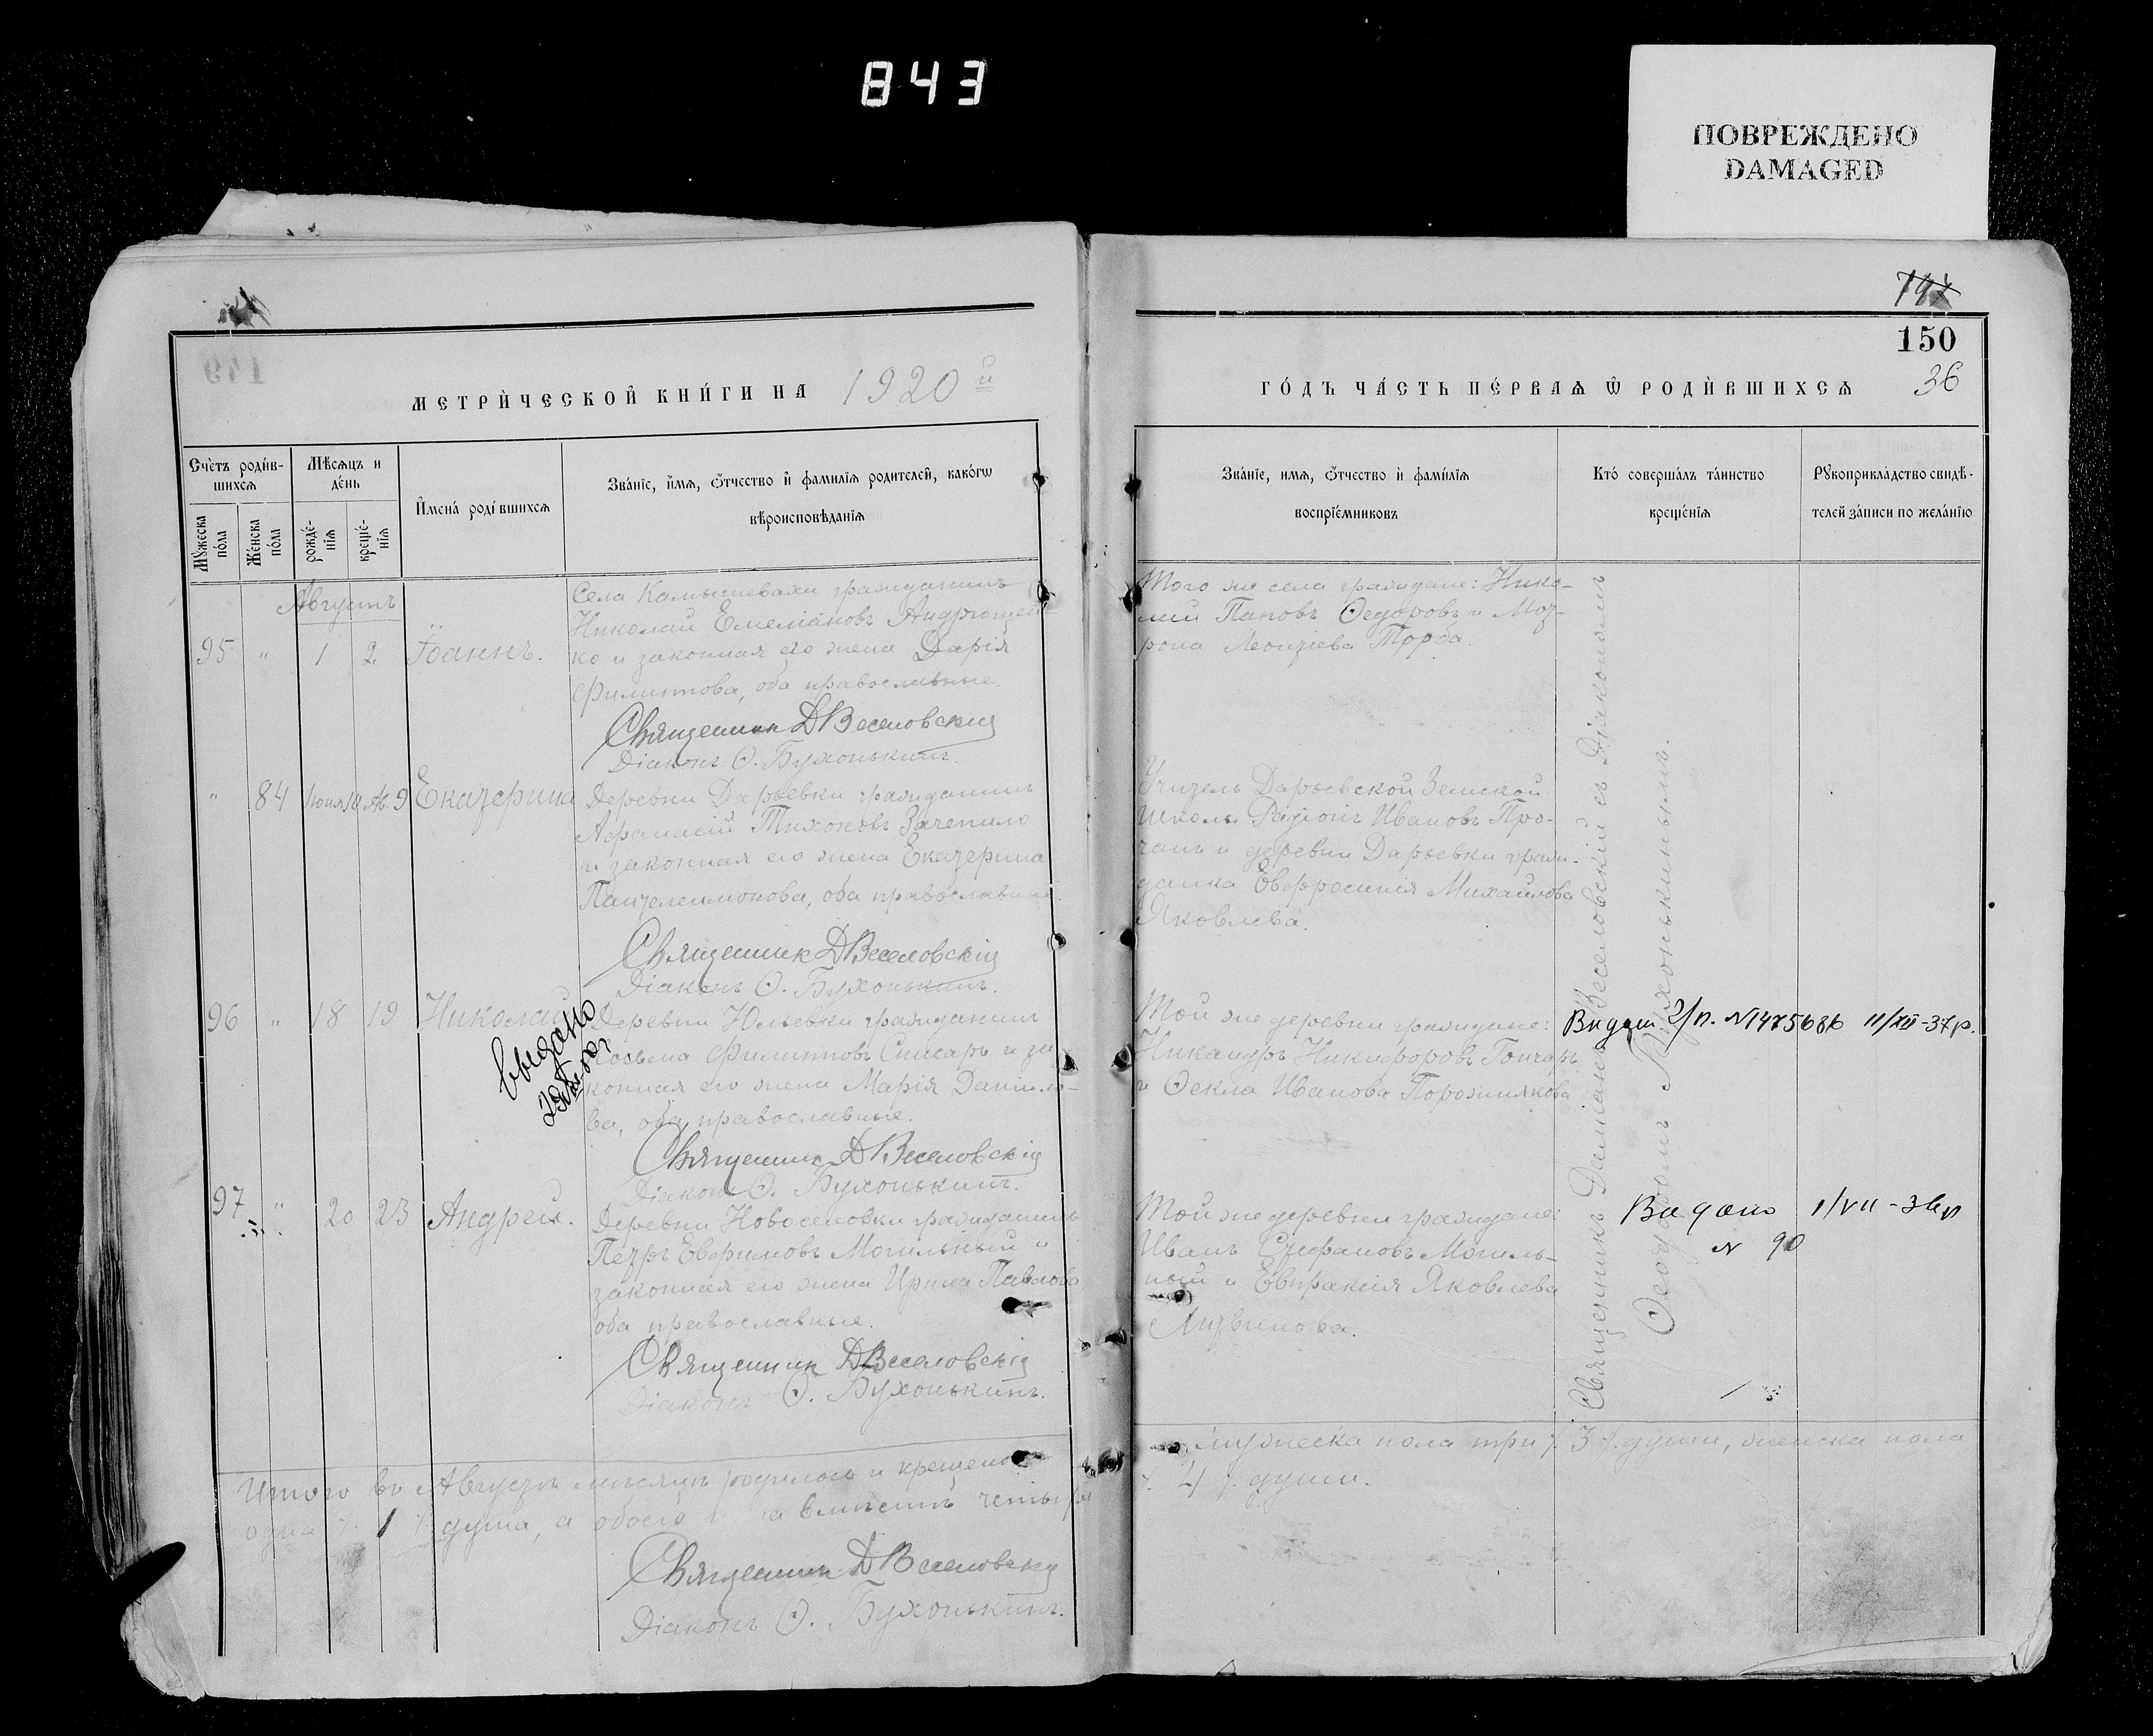 843
ПОВРЕЖДЕНО
DAMAGED
150
36
МЕТРИ́ЧЕСКОЙ КНИ́ГИ НА 1920 й
ГО́ДЪ ЧА́СТЬ ПЕ́РВАѦ Ѡ҆ РОДИ́ВШИХСѦ
Сче́тъ роди́в-
шихсѧ
Мѣ́сѧцъ и
де́нь
Мꙋ́жеска
по́ла
Же́нска
по́ла
рожде́-
нїѧ
креще́-
нїѧ
И҆мена́ роди́вшихсѧ
Зва́нїе, и҆́мѧ, ѻ҆́тчество и҆ фами́лїѧ роди́телей, како́гѡ
вѣроисповѣ́данїѧ
Зва́нїе, имѧ, ѻ҆́тчество и҆ фами́лїѧ
воспрїе́мниковъ
Кто́ соверша́лъ та́инство
креще́нїѧ
Рꙋкоприкла́дство свидѣ́-
телей за́писи по жела́нїю
Августъ
95 " 1 2 Іоаннъ.
Села Камышевахи гражданинъ
Николай Емеліановъ Андрющен-
ко и законная его жена Дарія
Филиппова, оба православные.
Священник Д Веселовскій
Діаконъ Ѳ. Бухонькинъ.
Того же села граждане: Нико-
лай Павловъ Ѳедоровъ и Мот-
рона Леонтіева Торба.
" 84 Авг. 9 Екатерина
Деревни Дарьевки гражданинъ
Афанасій Тихоновъ Зачепило
и законная его жена Екатерина
Пантелеимонова, оба православные.
Священник Д Веселовскій
Діаконъ Ѳ. Бухонькинъ.
Учитель Дарьевской Земской
школы Родіонъ Ивановъ Про-
чанъ и деревни Дарьевки граж-
данка Евфросинія Михайлова
Яковлева.
96 " 18 19 Николай
выдано
Деревни Юльевки гражданинъ
Косьма Филипповъ Слисарь и за
конная его жена Марія Данило-
ва, оба православные.
Священник Д Веселовскій
Діаконъ Ѳ. Бухонькинъ.
Той же деревни граждане:
Никандръ Никифоровъ Гончаръ
и Ѳекла Иванова Порожнякова
Видан 2/п. №1475686 11/XII-37р.
97 " 20 23 Андрей.
Деревни Новоселовки гражданинъ
Петръ Евфимовъ Могильный и
законная его жена Ирина Павлова
оба православные.
Священник Д Веселовскій
Діаконъ Ѳ. Бухонькинъ.
Той же деревни граждане:
Иванъ Стефановъ Могиль-
ный и Евпраксія Яковлева
Литвинова.
Видано 1/VII-36р
№ 90
Священникъ Даміанъ Веселовскій съ Діакономъ
Ѳеодоромъ Бухонькинымъ.
Итого въ Августѣ мѣсяцѣ родилось и крещено мужеска пола три /. 3 /. души, женска пола
одна /. 1 /. душа, а обоего пола вмѣстѣ четыре /. 4 /. души.
Священник Д Веселовскій
Діаконъ Ѳ. Бухонькинъ.